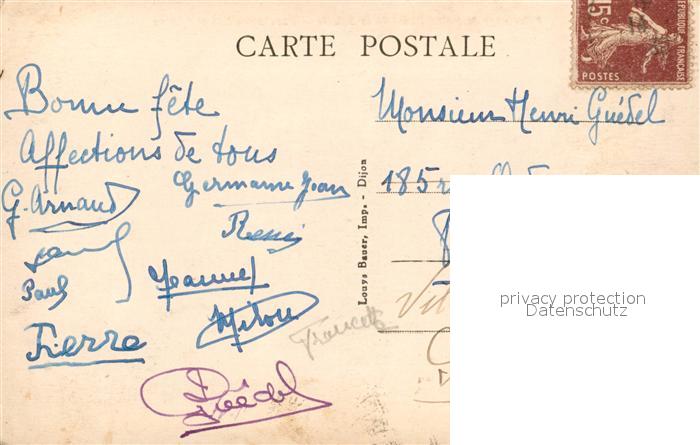 15c
POSTES
CARTE POSTALE
Bonne fête
Affections de tous
G. Arnaud
Germaine Jean
Paul
Jeanne
Pierre
Francette
Guédel
Louys Bauer, Imp. - Dijon
Monsieur Henri Guédel
185
privacy protection
Datenschutz